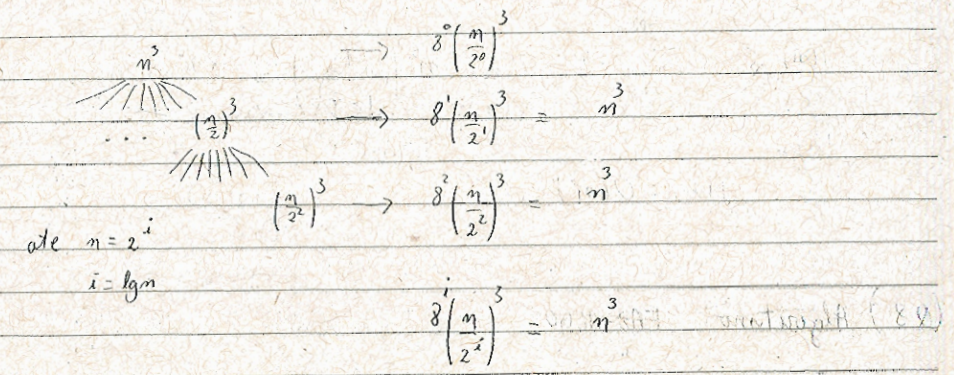 n³ → 8⁰(n/2⁰)³
... (n/2)³ → 8¹(n/2¹)³ = n³
(n/2²)³ → 8²(n/2²)³ = n³
ate n = 2ⁱ
i = lgn
8ⁱ(n/2ⁱ)³ = n³